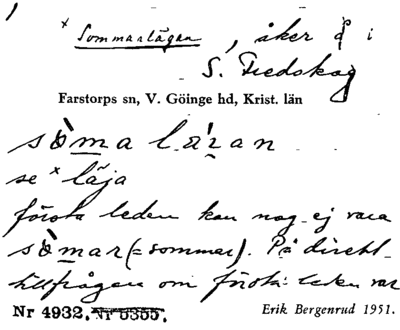 × Sommarlägan, åker på i
S. Fredskog
Farstorps sn, V. Göinge hd, Krist. län
sò̀malázan
se × läja
första leden kan nog ej vara
sòmar (= sommar). På direkt-
tillfrågan om första leden var
Nr 4932. Nr 5355.
Erik Bergenrud 1951.